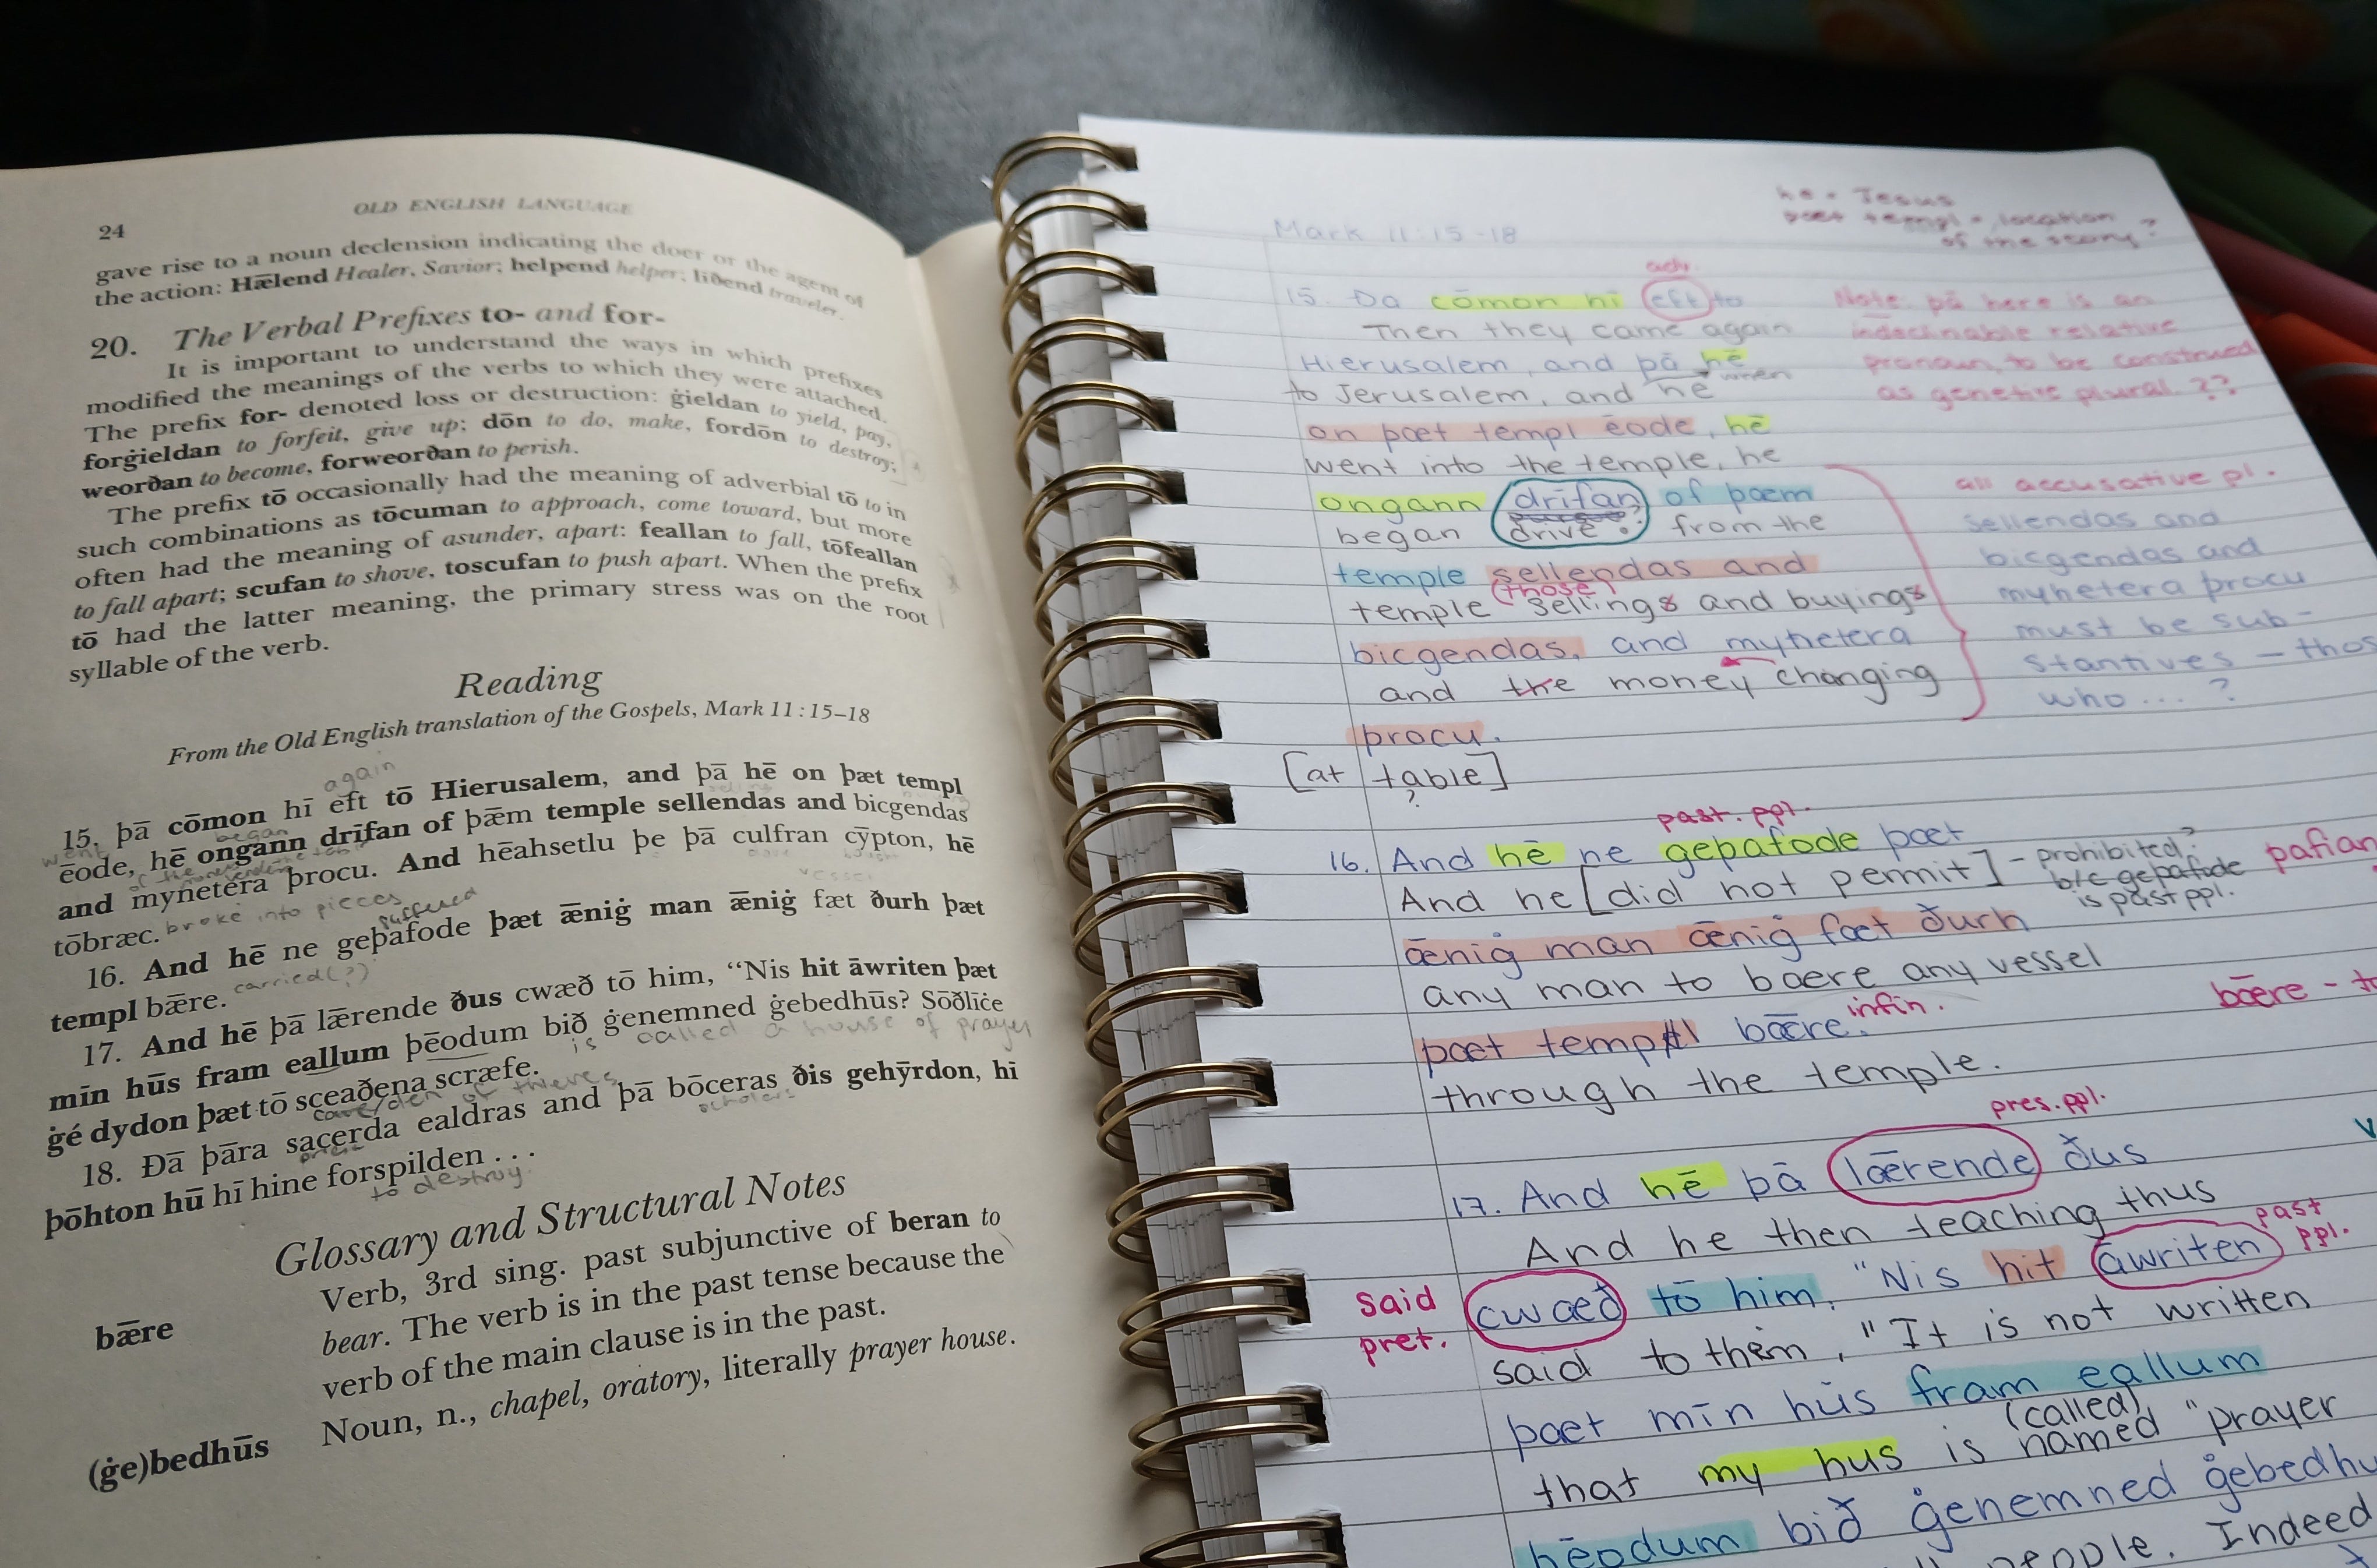 24
OLD ENGLISH LANGUAGE
gave rise to a noun declension indicating the doer or the agent of
the action: Hǣlend Healer, Savior; helpend helper; liðend traveler.
20. The Verbal Prefixes to- and for-
It is important to understand the ways in which prefixes
modified the meanings of the verbs to which they were attached.
The prefix for- denoted loss or destruction: ġieldan to yield, pay,
forġieldan to forfeit, give up; dōn to do, make, fordōn to destroy;
weorðan to become, forweorðan to perish.
The prefix tō occasionally had the meaning of adverbial tō to in
such combinations as tōcuman to approach, come toward, but more
often had the meaning of asunder, apart: feallan to fall, tōfeallan
to fall apart; scufan to shove, toscufan to push apart. When the prefix
tō had the latter meaning, the primary stress was on the root
syllable of the verb.
Reading
From the Old English translation of the Gospels, Mark 11:15–18
again
15. þā cōmon hī eft tō Hierusalem, and þā hē on þæt templ
went began
ēode, hē ongann drīfan of þǣm temple sellendas and bicgendas
of the
and mynetera þrocu. And hēahsetlu þe þā culfran cȳpton, hē
tōbræc. broke into pieces
suffered
vessel
16. And hē ne geþafode þæt ǣniġ man ǣniġ fæt ðurh þæt
templ bǣre. carried(?)
17. And hē þā lǣrende ðus cwæð tō him, “Nis hit āwriten þæt
mīn hūs fram eallum þēodum bið ġenemned ġebedhūs? Sōðlīċe
is called a house of prayer
ġé dydon þæt tō sceaðena scræfe.
cave/den of thieves
18. Ðā þāra sacerda ealdras and þā bōceras ðis gehȳrdon, hī
scholars
þōhton hū hī hine forspilden . . .
to destroy.
Glossary and Structural Notes
bǣre Verb, 3rd sing. past subjunctive of beran to
bear. The verb is in the past tense because the
verb of the main clause is in the past.
(ġe)bedhūs Noun, n., chapel, oratory, literally prayer house.
he = Jesus
þæt templ = location
of the story?
Mark 11:15-18
adv.
15. Ða cōmon hī eft to
Then they came again
Hierusalem, and þā hē
when
to Jerusalem, and he
on þæt templ ēode, hē
went into the temple, he
ongann drīfan of þæm
began drive? from the
temple sellendas and
(those)
temple sellings and buyings
bicgendas, and mynetera
and the money changing
þrocu.
[at table]
?
Note: þā here is an
indeclinable relative
pronoun, to be construed
as genetive plural??
all accusative pl.
sellendas and
bicgendas and
mynetera þrocu
must be sub-
stantives – thos
who... ?
past. ppl.
16. And hē ne geþafode þæt
And he [did not permit] - prohibited?
b/c geþafode
is past ppl.
þafian
ǣniġ man ǣniġ fæt ðurh
any man to baere any vessel
infin.
þæt templ bǣre.
through the temple.
bǣre - to
pres. ppl.
17. And hē þā lǣrende ðus
And he then teaching thus
past
ppl.
said
pret.
cwaeð tō him, "Nis hit āwriten
said to them, "It is not written
þæt mīn hūs fram eallum
(called)
that my hus is named "prayer
þēodum bið ġenemned ġebedhu
people. Indeed